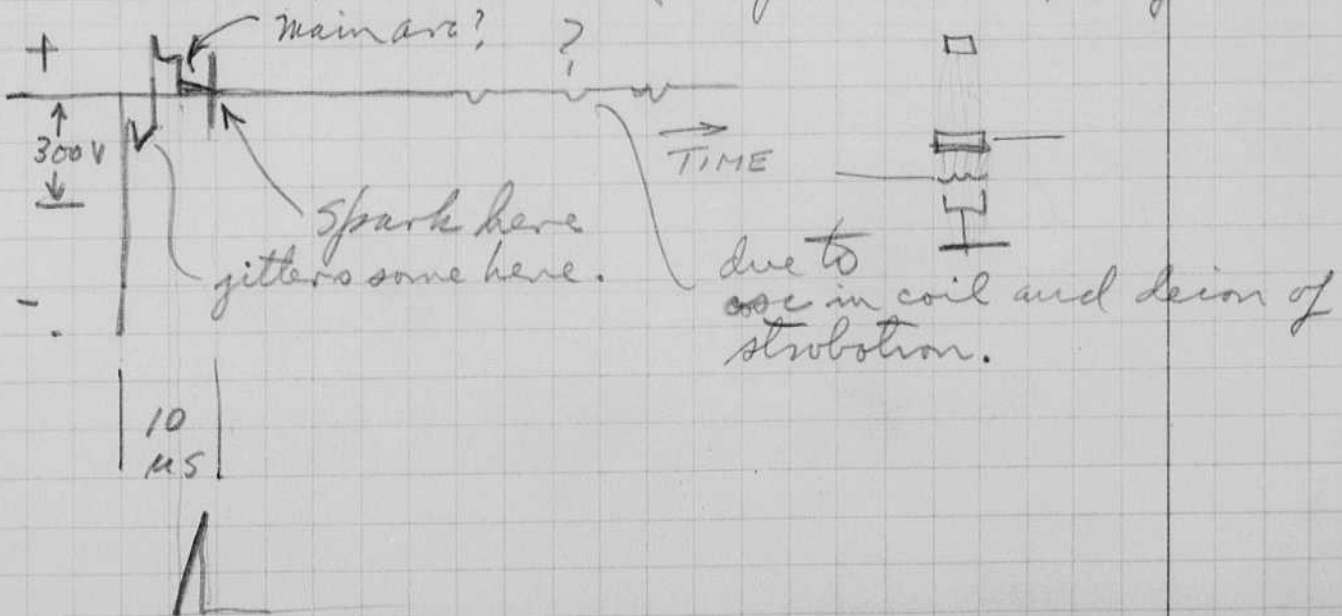 main arc? ?
+
300 V
TIME
Spark here
jitters some here.
due to
osc in coil and deion of
strobotron.
-
10
μs